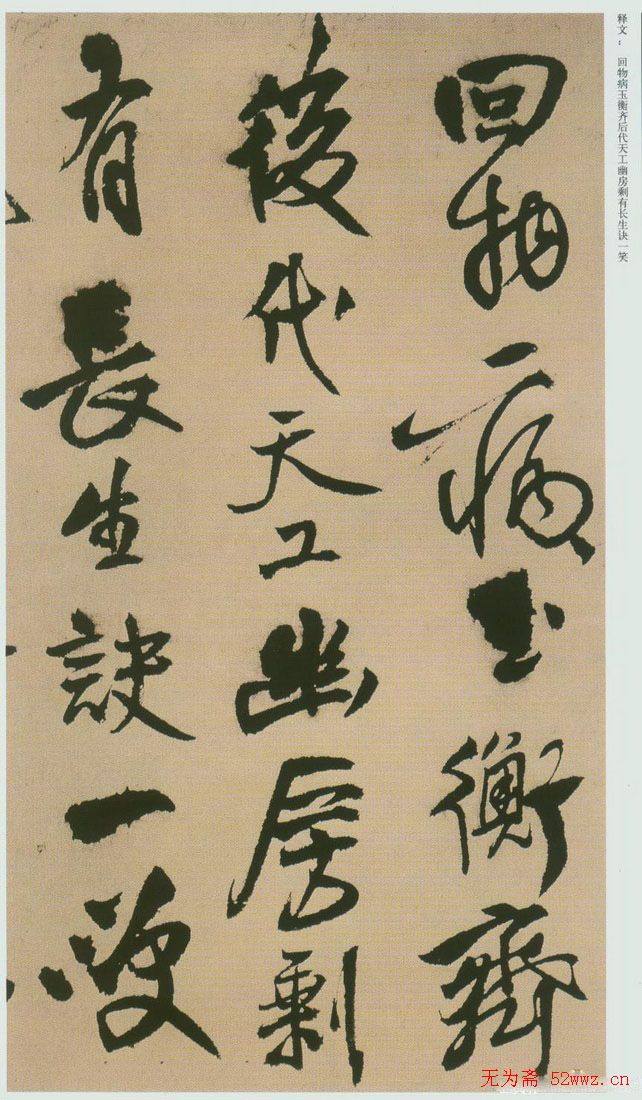 释文：　回物病玉衡齐后代天工幽房剩有长生诀一笑
回物病玉衡齊
後代天工幽房剩
有長生訣一笑
无为斋 52wwz.cn